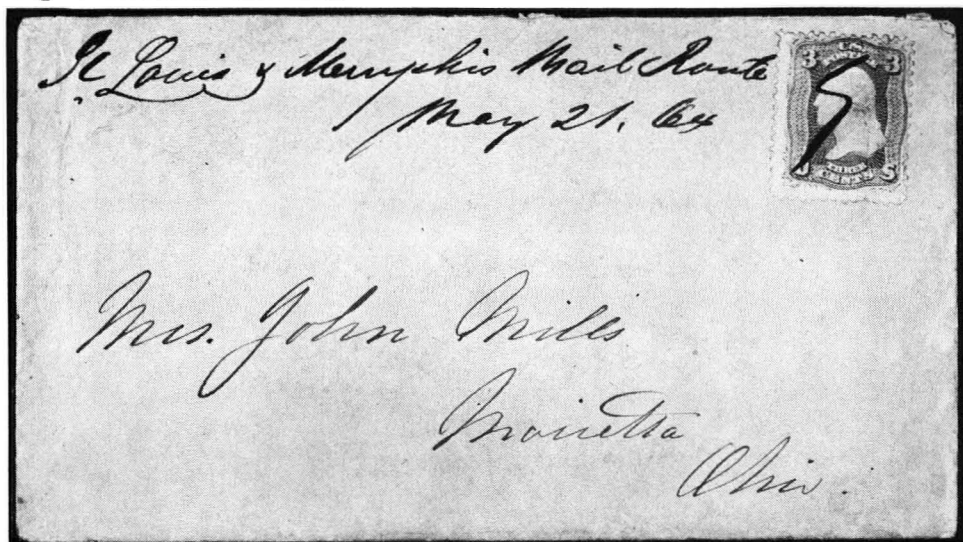 St Louis & Memphis Mail Route
May 21. 64
3 3
CENTS
Mrs. John Mills
Marietta
Ohio.